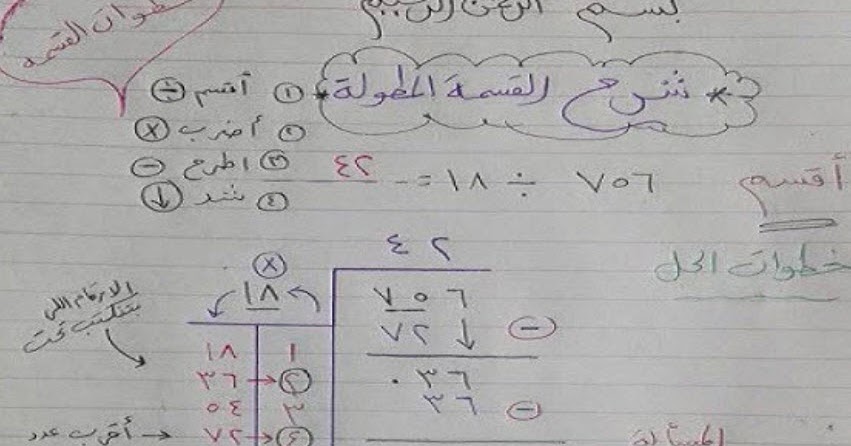 بسم الله الرحمن الرحيم
خطوات القسمه
* شرح القسمة المطولة *
① أقسم ÷
② أضرب ×
③ اطرح −
④ شد ↓
أقسم ٧٥٦ ÷ ١٨ = ٤٢
خطوات الحل
٤٢
× ١٨
٧٥٦
٧٢ ↓ −
٠٣٦
٣٦ −
الارقام اللى بتتكتب تحت
١٨ ١
٣٦ ← ٢
٥٤ ٣
٧٢ ← ٤
أقرب عدد
المسألة